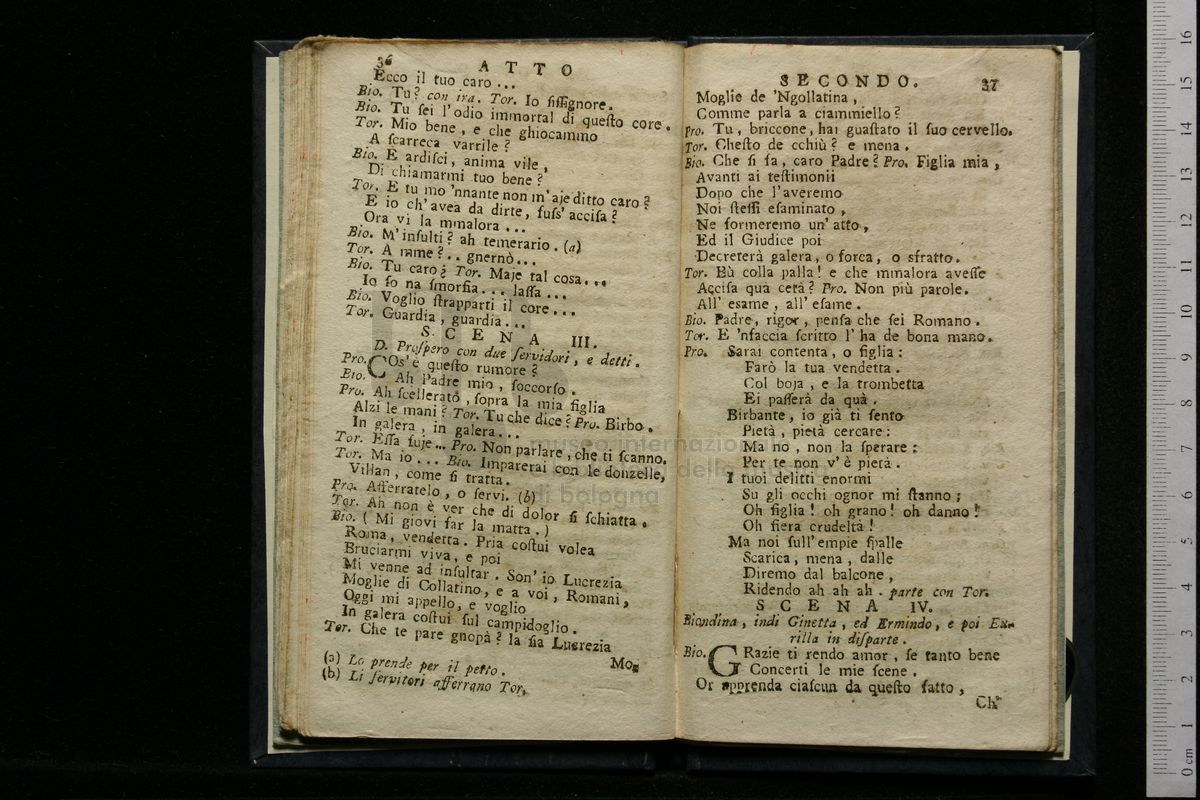 36 ATTO
Ecco il tuo caro...
Bio. Tu? con ira. Tor. Io ſiſſignore.
Bio. Tu ſei l'odio immortal di queſto core.
Tor. Mio bene, e che ghiocammo
A ſcarreca varrile?
Bio. E ardiſci, anima vile,
Di chiamarmi tuo bene?
Tor. E tu mo 'nnante non m'aje ditto caro?
E io ch'avea da dirte, fuſs' acciſa?
Ora vi la mmalora...
Bio. M'inſulti? ah temerario. (a)
Tor. A mme?.. gnernò...
Bio. Tu caro? Tor. Maje tal coſa...
Io fo na ſmorfia... laſſa...
Bio. Voglio ſtrapparti il core...
Tor. Guardia, guardia...
SCENA III.
D. Proſpero con due ſervidori, e detti.
Pro. COs' è queſto rumore?
Bio. Ah Padre mio, ſoccorſo.
Pro. Ah ſcellerato, ſopra la mia figlia
Alzi le mani? Tor. Tu che dice? Pro. Birbo.
In galera, in galera...
Tor. Eſſa fuje... Pro. Non parlare, che ti ſcanno.
Tor. Ma io... Bio. Imparerai con le donzelle,
Villan, come ſi tratta.
Pro. Afferratelo, o ſervi. (b)
Tor. Ah non è ver che di dolor ſi ſchiatta.
Bio. (Mi giovi far la matta.)
Roma, vendetta. Pria coſtui volea
Bruciarmi viva, e poi
Mi venne ad inſultar. Son' io Lucrezia
Moglie di Collatino, e a voi, Romani,
Oggi mi appello, e voglio
In galera coſtui ſul campidoglio.
Tor. Che te pare gnopà? la ſia Lucrezia
Mo-
(a) Lo prende per il petto.
(b) Li ſervitori afferrano Tor.
SECONDO. 37
Moglie de 'Ngollatina,
Comme parla a ciammiello?
Pro. Tu, briccone, hai guaſtato il ſuo cervello.
Tor. Cheſto de cchiù? e mena.
Bio. Che ſi fa, caro Padre? Pro. Figlia mia,
Avanti ai teſtimonii
Dopo che l'averemo
Noi ſteſſi eſaminato,
Ne formeremo un' atto,
Ed il Giudice poi
Decreterà galera, o forca, o sfratto.
Tor. Bù colla palla! e che mmalora aveſſe
Acciſa quà cetà? Pro. Non più parole.
All' eſame, all' eſame.
Bio. Padre, rigor, penſa che ſei Romano.
Tor. E 'nfaccia ſcritto l'ha de bona mano.
Pro. Sarai contenta, o figlia:
Farò la tua vendetta.
Col boja, e la trombetta
Ei paſſerà da quà.
Birbante, io già ti ſento
Pietà, pietà cercare:
Ma no, non la ſperare:
Per te non v'è pietà.
I tuoi delitti enormi
Su gli occhi ognor mi ſtanno;
Oh figlia! oh grano! oh danno!
Oh fiera crudeltà!
Ma noi ſull' empie ſpalle
Scarica, mena, dalle
Diremo dal balcone,
Ridendo ah ah ah. parte con Tor.
SCENA IV.
Biondina, indi Ginetta, ed Ermindo, e poi Eu-
rilla in diſparte.
Bio. GRazie ti rendo amor, ſe tanto bene
Concerti le mie ſcene.
Or apprenda ciaſcun da queſto fatto,
Ch'